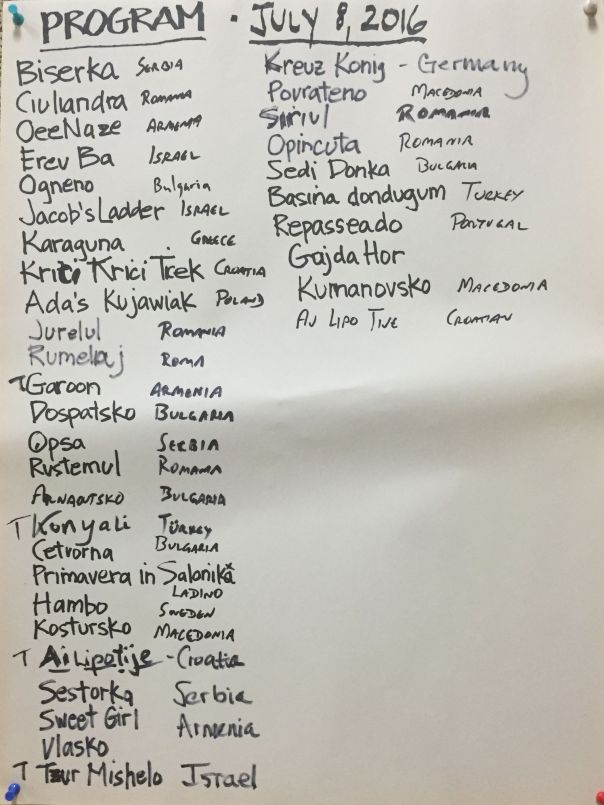 PROGRAM • JULY 8, 2016
Biserka SERBIA
Ciuliandra ROMANIA
OeeNaze ARMENIA
Erev Ba ISRAEL
Ogneno Bulgaria
Jacob's Ladder ISRAEL
Karaguna GREECE
Kriči Kriči Tček CROATIA
Ada's Kujawiak POLAND
Jurelul ROMANIA
Rumelaj ROMA
T Garoon ARMENIA
Dospatsko BULGARIA
Opsa SERBIA
Rustemul ROMANIA
ARNAOUTSKO BULGARIA
T Konyali TÜRKEY
Cetvorna BULGARIA
Primavera in Salonika
LADINO
Hambo SWEDEN
Kostursko MACEDONIA
T Ai Lipotije - Croatia
Sestorka Serbia
Sweet Girl Armenia
Vlasko
T Tzur Mishelo Israel
Kreuz Konig - Germany
Povrateno MACEDONIA
Siriul ROMANIA
Opincuta ROMANIA
Sedi Donka BULGARIA
Basina dondugum TURKEY
Repasseado PORTUGAL
Gajda Hor
Kumanovsko MACEDONIA
AJ LIPO TIJE CROATIAN